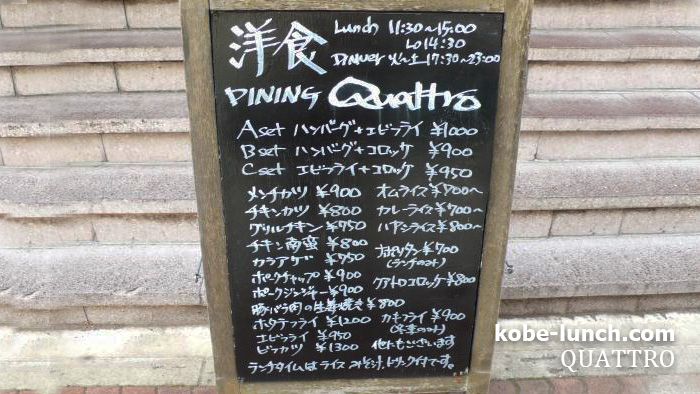 洋食
Lunch 11:30~15:00
LO 14:30
Dinner 火~土 17:30~23:00
DINING Quattro
Aset ハンバーグ+エビフライ ¥1000
Bset ハンバーグ+コロッケ ¥900
Cset エビフライ+コロッケ ¥950
メンチカツ ¥900
チキンカツ ¥800
グリルチキン ¥750
チキン南蛮 ¥800
カラアゲ ¥750
ポークチャップ ¥900
ポークジンジャー ¥900
豚バラ肉の生姜焼き ¥800
ホタテフライ ¥1200
エビフライ ¥950
ビフカツ ¥1300
オムライス ¥700~
カレーライス ¥700~
ハヤシライス ¥800~
ナポリタン ¥700
(ランチのみ)
クアトロコロッケ ¥800
カキフライ ¥900
(冬季のみ)
他にもございます
ランチタイムは ライス みそ汁、ドリンク付です。
kobe-lunch.com
QUATTRO